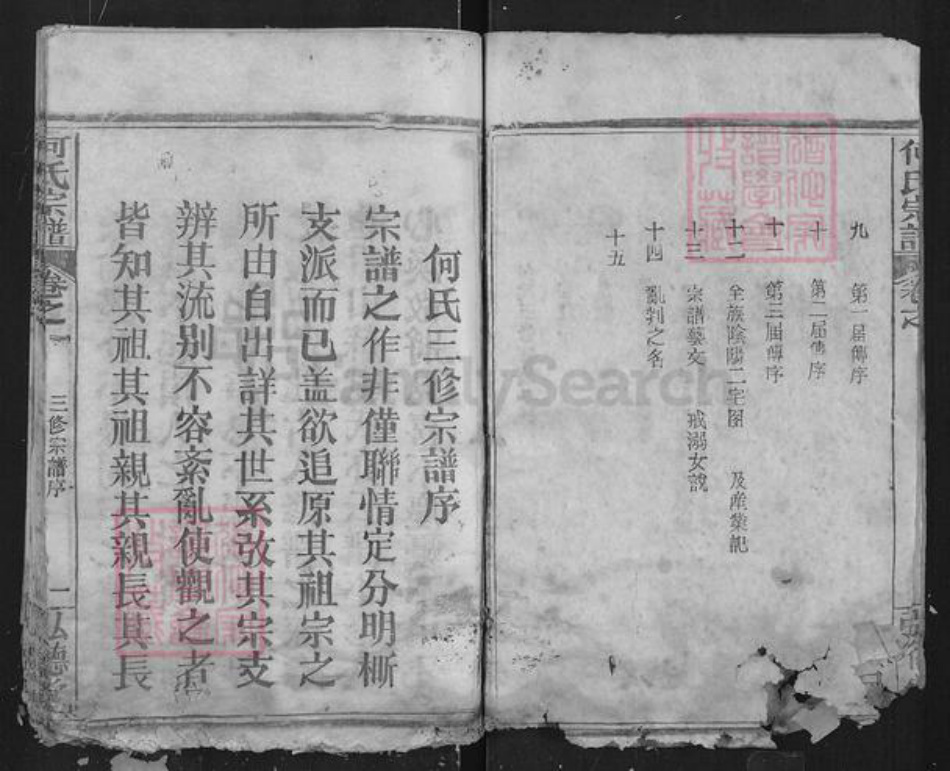 何氏宗譜
卷之
九 第一届傳序
十 第二届傳序
十一 第三届傳序
十二 全族陰陽二宅图 及産業記
十三 宗譜藝文 戒溺女說
十四 亂剝之名
十五
何氏三修宗譜序
宗譜之作非僅聯情定分明槲
支派而已盖欲追原其祖宗之
所由自出詳其世系攷其宗支
辨其流别不容紊亂使觀之者
皆知其祖其祖親其親長其長
何氏宗譜
卷之一
三修宗譜序
一
弘德
FamilySearch